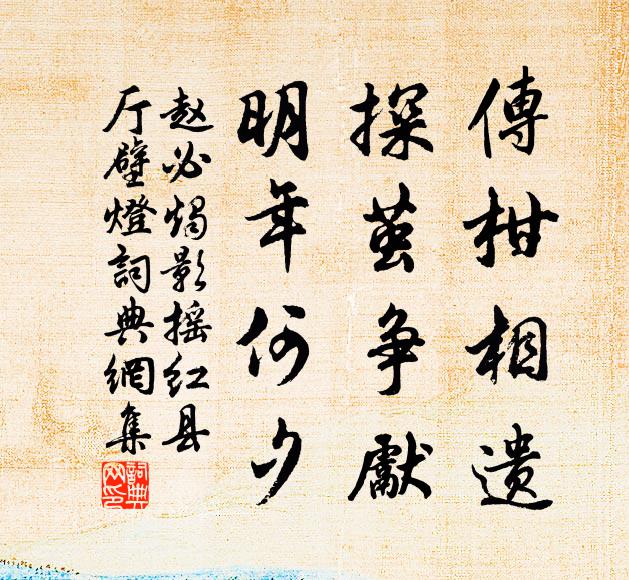 傳柑相遗
探茧争獻
明年何夕
赵必𤩪影摇红县
厅壁燈詞典網集
詞典网印